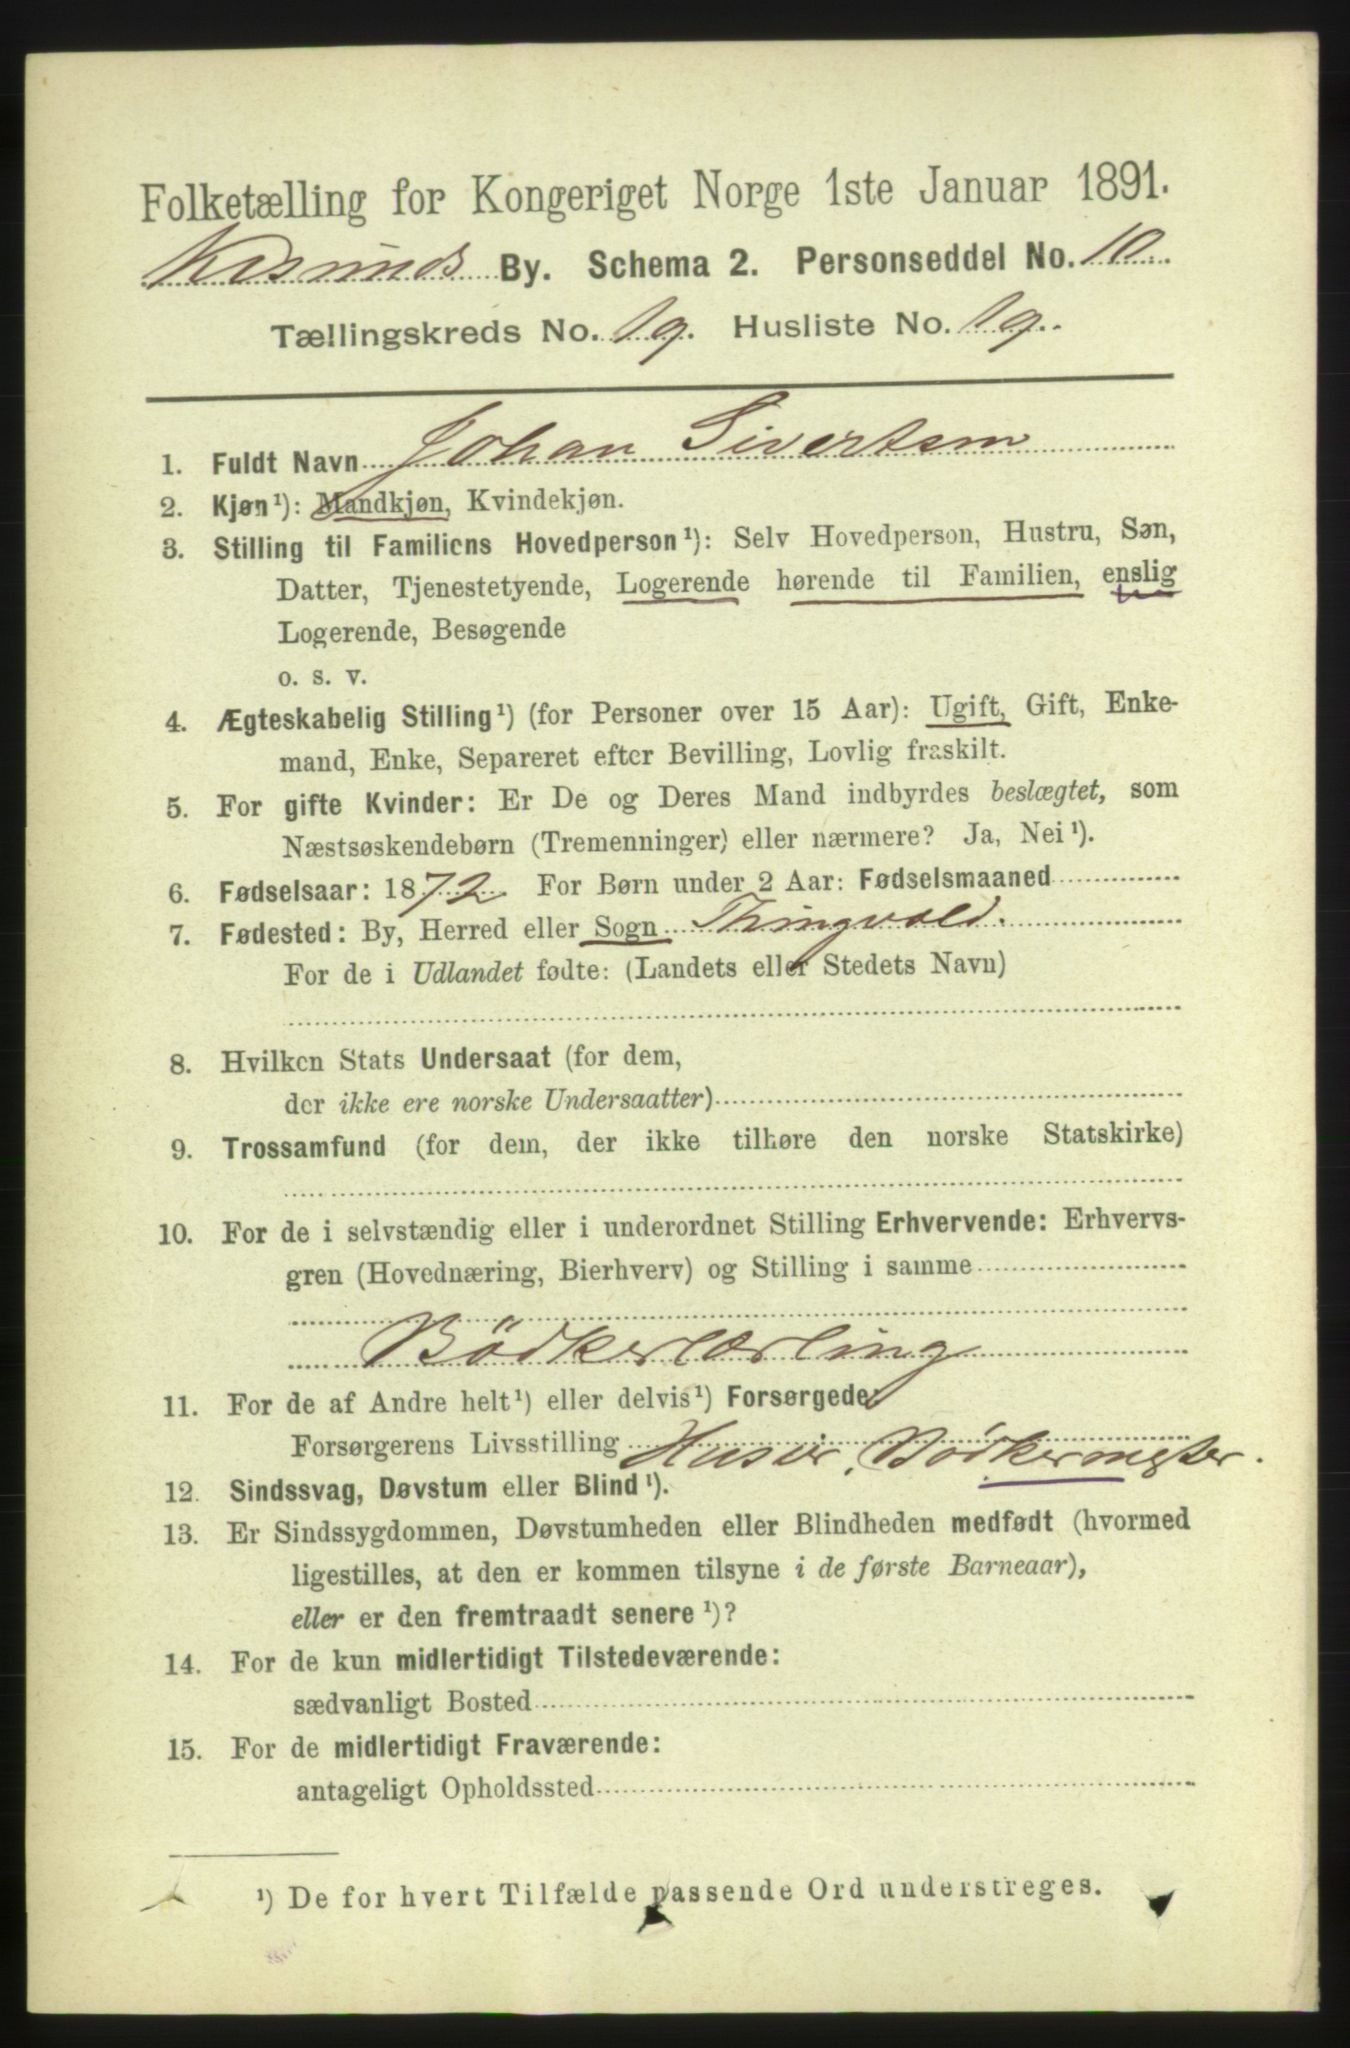 Folketælling for Kongeriget Norge 1ste Januar 1891.
Krsunds By. Schema 2. Personseddel No. 10.
Tællingskreds No. 19. Husliste No. 19.
1. Fuldt Navn Johan Sivertsen
2. Kjøn¹): Mandkjøn, Kvindekjøn.
3. Stilling til Familiens Hovedperson¹): Selv Hovedperson, Hustru, Søn,
Datter, Tjenestetyende, Logerende hørende til Familien, enslig
Logerende, Besøgende
o. s. v.
4. Ægteskabelig Stilling¹) (for Personer over 15 Aar): Ugift, Gift, Enke-
mand, Enke, Separeret efter Bevilling, Lovlig fraskilt.
5. For gifte Kvinder: Er De og Deres Mand indbyrdes beslægtet, som
Næstsøskendebørn (Tremenninger) eller nærmere? Ja, Nei¹).
6. Fødselsaar: 1872 For Børn under 2 Aar: Fødselsmaaned
7. Fødested: By, Herred eller Sogn Thingvold.
For de i Udlandet fødte: (Landets eller Stedets Navn)
8. Hvilken Stats Undersaat (for dem,
der ikke ere norske Undersaatter)
9. Trossamfund (for dem, der ikke tilhøre den norske Statskirke)
10. For de i selvstændig eller i underordnet Stilling Erhvervende: Erhvervs-
gren (Hovednæring, Bierhverv) og Stilling i samme
Bödkerlærling
11. For de af Andre helt¹) eller delvis¹) Forsørgede:
Forsørgerens Livsstilling Huseier, Bödkermester.
12. Sindssvag, Døvstum eller Blind¹).
13. Er Sindssygdommen, Døvstumheden eller Blindheden medfødt (hvormed
ligestilles, at den er kommen tilsyne i de første Barneaar),
eller er den fremtraadt senere¹)?
14. For de kun midlertidigt Tilstedeværende:
sædvanligt Bosted
15. For de midlertidigt Fraværende:
antageligt Opholdssted
¹) De for hvert Tilfælde passende Ord understreges.